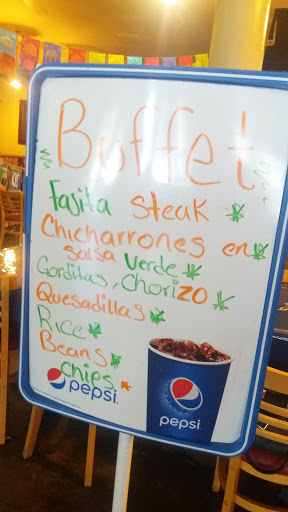 Buffet
Fajita steak
Chicharrones en
salsa verde
Gorditas, chorizo
Quesadillas
Rice
Beans
chips
pepsi
pepsi